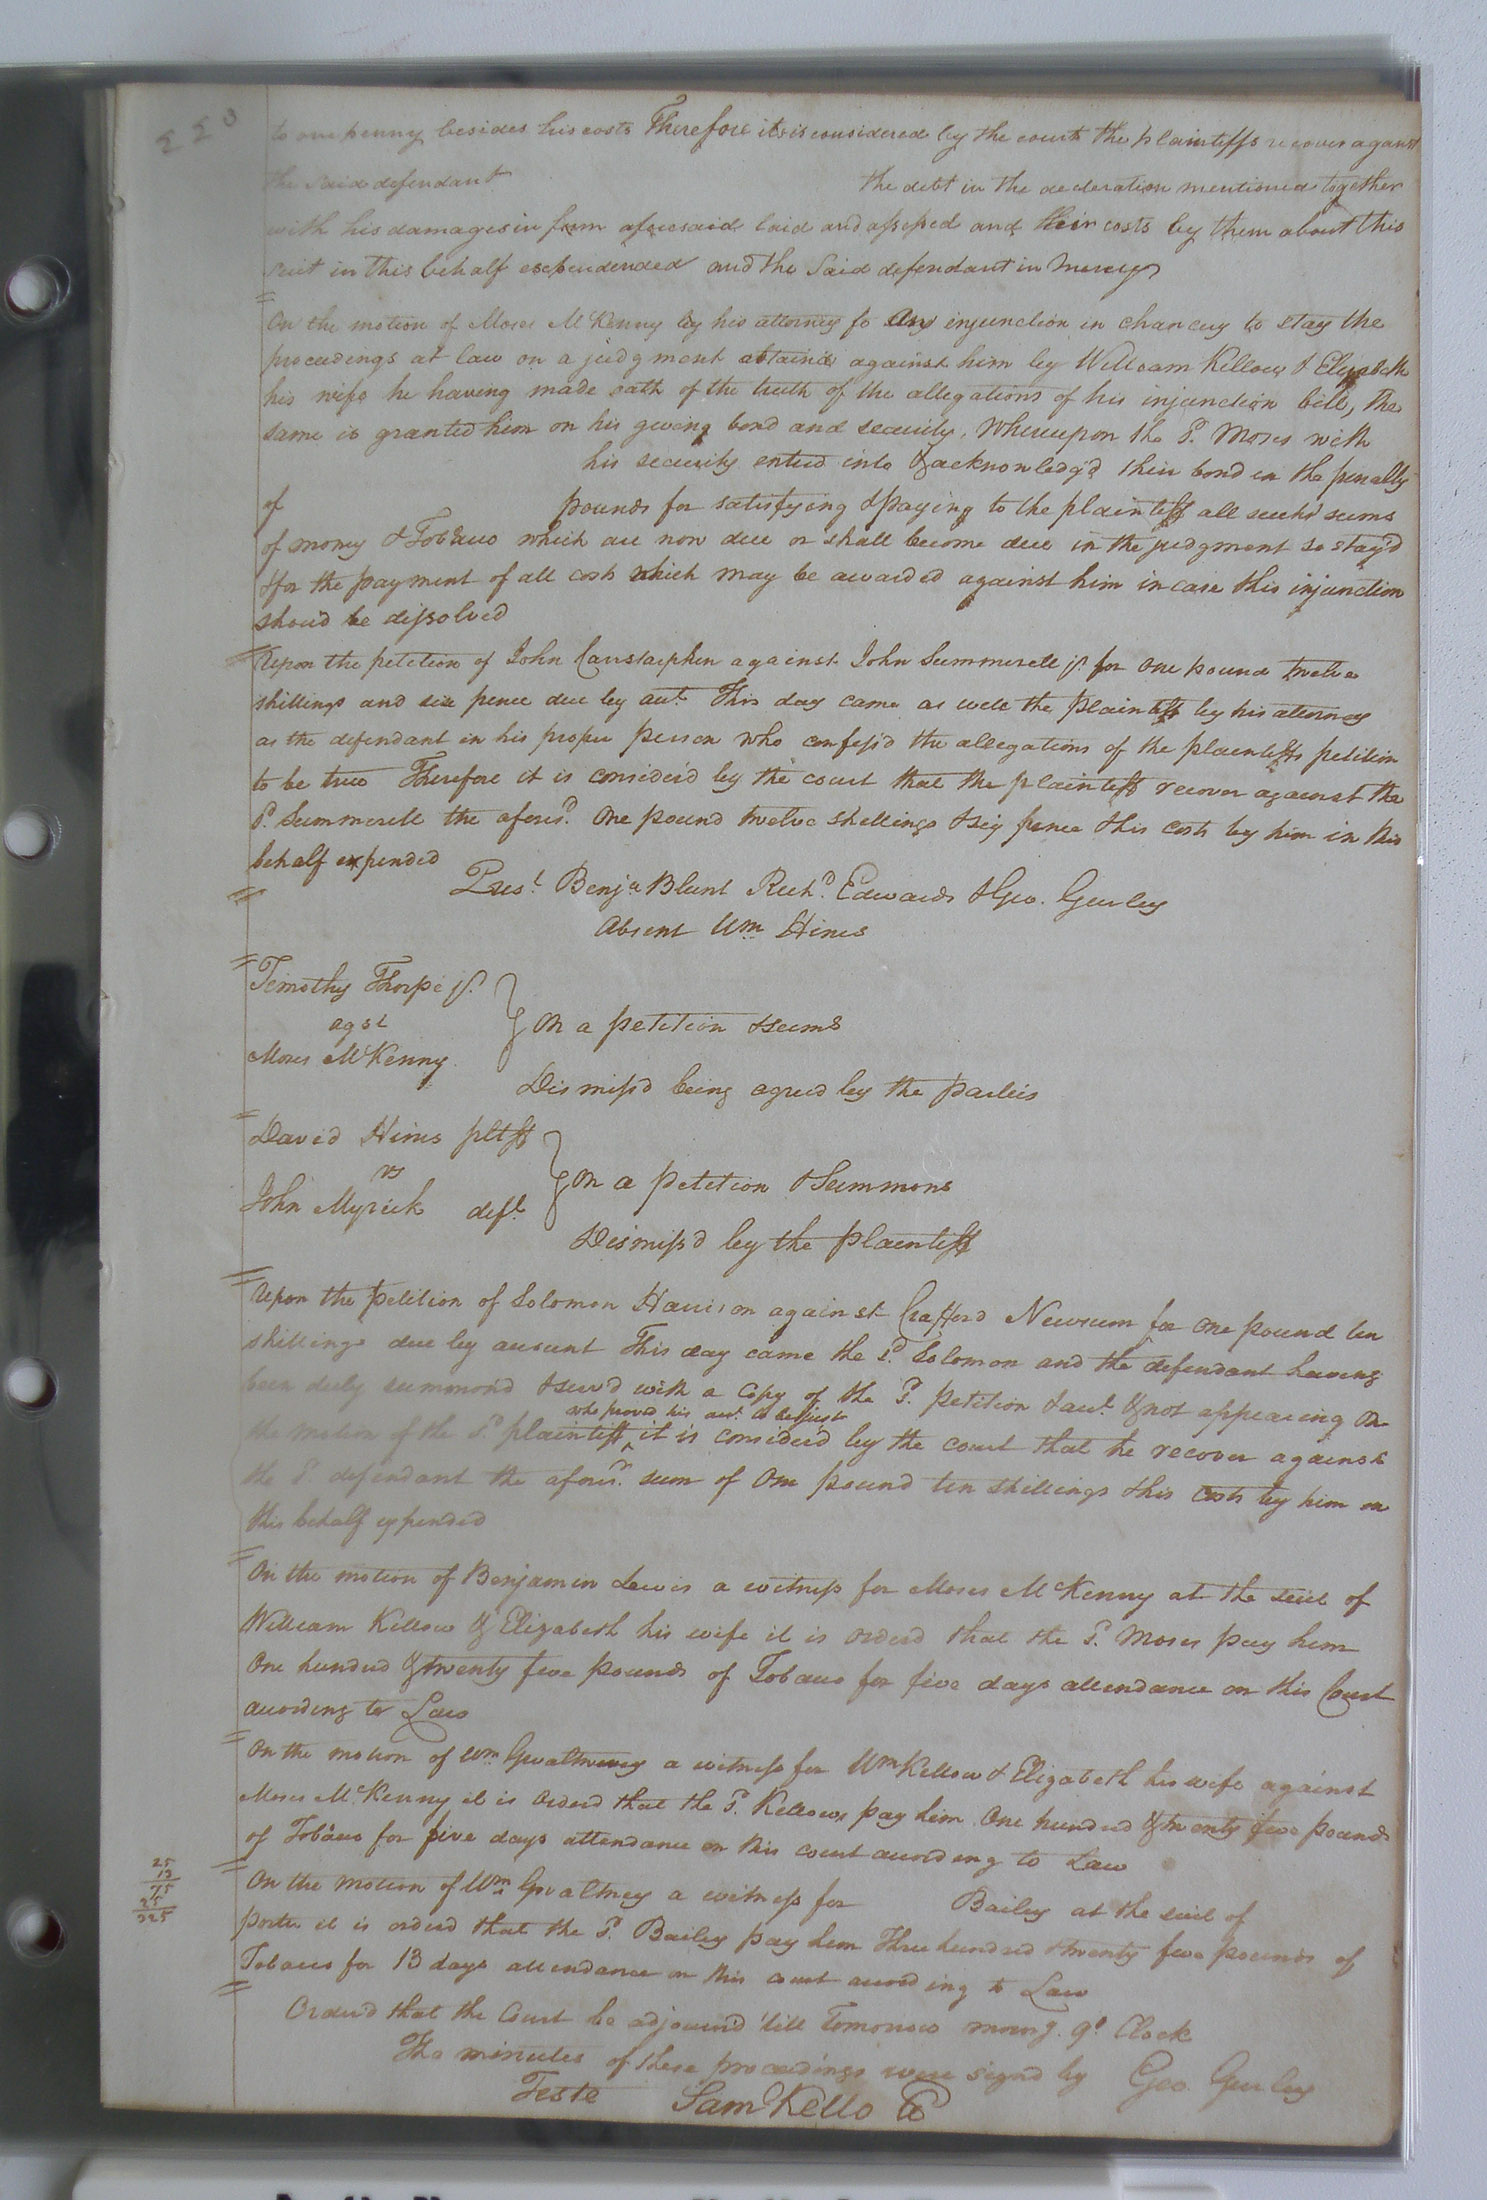 220
to one penny besides his costs Therefore it is considered by the court the plaintiffs recover against
the said defendant the debt in the declaration mentioned together
with his damages in form aforesaid laid and assessed and their costs by them about this
suit in this behalf expendended and the said defendant in mercy
On the motion of Moses McKenny by his attorney fo any injunction in chancey to stay the
proceedings at law on a judgment obtaind against him by William Kellow & Elizabeth
his wife he having made oath of the truth of the allegations of his injunction bill, the
same is granted him on his giving bond and security, Whereupon the Sd. Moses with
his security entred into & acknowledg'd their bond in the penalty
of pounds for satisfying & paying to the plaintiff all such sums
of money & Tobacco which are now due or shall become due in the judgment so stay'd
& for the payment of all costs which may be awarded against him in case this injunction
shoud be dissolved
Upon the petition of John Carrstarphen against John Summerell jr. for one pound twelve
shillings and six pence due by acct. This day came as well the plaintiff by his attorney
as the defendant in his proper person who confess'd the allegations of the plaintiffs petition
to be true Therefore it is considerd by the court that the plaintiff recover against the
Sd. Summerell the aforesd. one pound twelve shillings & six pence & his costs by him in this
behalf expended
Prest. Benja Blunt Richd. Edwards & Geo. Gurley
Absent Wm Hines
Timothy Thorpe jr.
agst
Moses McKenny
On a petition & sums
Dismiss'd being agreed by the parties
David Hines pltff
vs
John Myrick deft.
On a petition & Summons
Dismiss'd by the plaintiff
Upon the petition of Solomon Harrison against Crafford Newsum for one pound ten
shillings due by account This day came the sd. Solomon and the defendant having
been duly summon'd & serv'd with a copy of the Sd. petition & acct. & not appearing On
who proved his acct. to be just
the motion of the Sd. plaintiff it is considerd by the court that he recover against
the Sd. defendant the aforesd. sum of One pound ten shillings & his costs by him in
this behalf expended
On the motion of Benjamin Lewis a witness for Moses McKenny at the suit of
William Kellow & Elizabeth his wife it is orderd that the Sd. Moses pay him
One hundred & twenty five pounds of Tobacco for five days attendance on this Court
according to Law
On the motion of Wm Gwaltney a witness for Wm Kellow & Elizabeth his wife against
Moses McKenny it is Orderd that the Sd. Kellows pay him One hundred & twenty five pounds
of Tobacco for five days attendance on this court according to Law
25
13
75
25
325
On the motion of Wm Gwaltney a witness for Bailey at the suit of
Porter it is orderd that the Sd. Bailey pay him Three hundred & twenty five pounds of
Tobacco for 13 days attendance on this court according to Law
Orderd that the Court be adjourn'd till Tomorrow morng. 9o Clock
The minutes of these proceedings were signd by Geo. Gurley
Teste Sam Kello CC